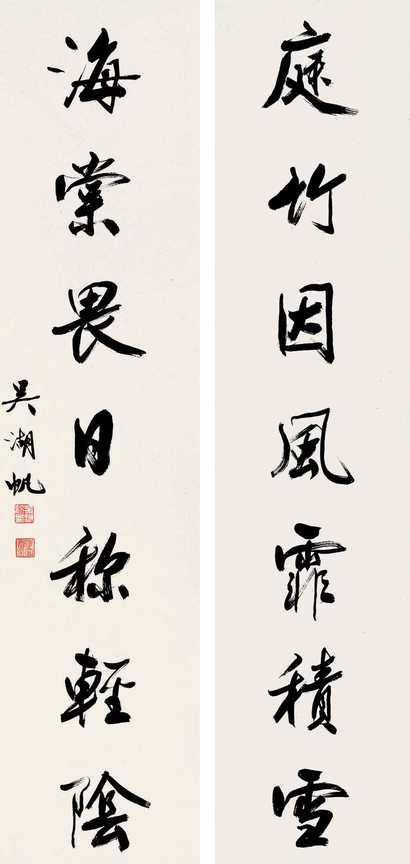 庭竹因風霏積雪
海棠畏日称輕陰
吴湖帆